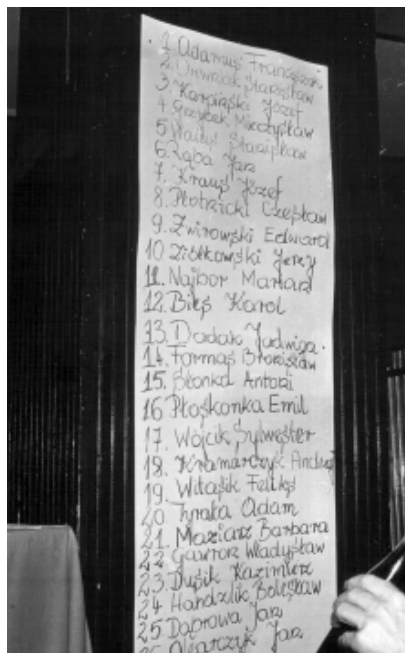 1. Adamus Franciszek
2. Stanisław
3. Karpiński Józef
4. Grzybek Mieczysław
5. Stanisław
6. Ząba Jan
7. Kraus Józef
8. Płotnicki Czesław
9. Żwirowski Edward
10 Ziółkowski Jerzy
11. Najbor Marian
12. Bieś Karol
13. Dadak Jadwiga.
14. Formas Bronisław
15. Słonka Antoni
16 Płoskonka Emil
17. Wójcik Sylwester
18. Kramarczyk Andrzej
19. Witasik Feliks
20. Tyrała Adam
21. Maziarz Barbara
22. Gawron Władysław
23. Dusik Kazimierz
24. Handzlik Bolesław
25. Dąbrowa Jan
26. Olearczyk Jan